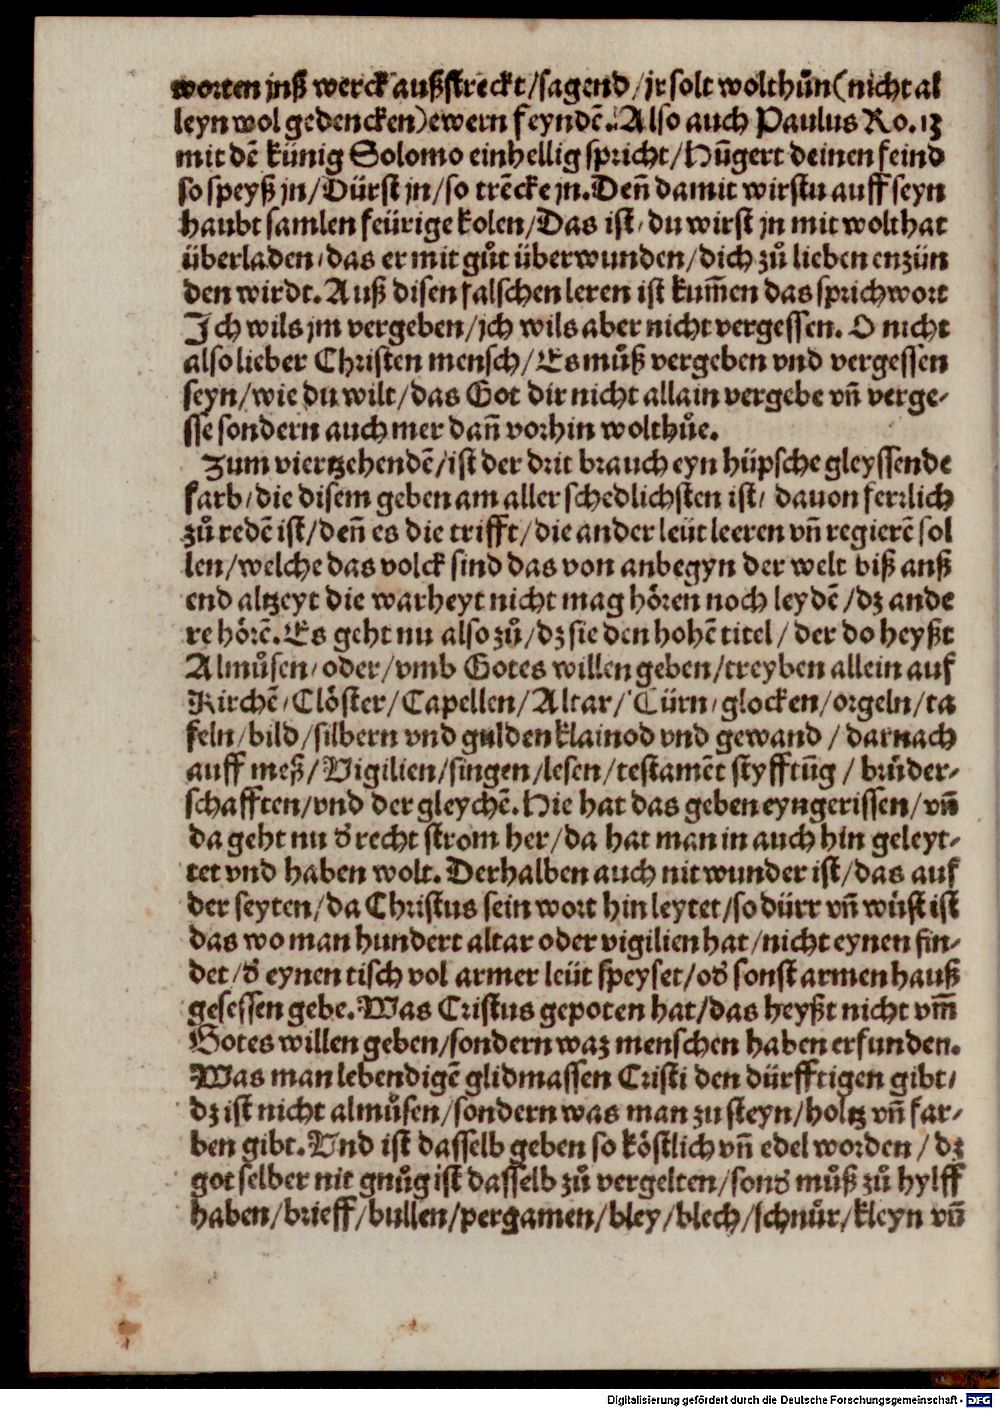 worten jnß werck außstreckt/sagend/jr solt wolthůn(nicht al
leyn wol gedencken)ewern feyndẽ. Also auch Paulus Ro.12
mit dẽ künig Solomo einhellig spricht/Hũgert deinen feind
so speyß jn/Dürst jn/so trẽcke jn.Deñ damit wirstu auff seyn
haubt samlen feürige kolen/Das ist/du wirst jn mit wolthat
überladen/das er mit gůt überwunden/dich zů lieben enzün
den wirdt.Auß disen falschen leren ist kum̃en das sprichwort
Jch wils jm vergeben/jch wils aber nicht vergessen. O nicht
also lieber Christen mensch/Es můß vergeben vnd vergessen
seyn/wie du wilt/das Got dir nicht allain vergebe vñ verge-
sse sondern auch mer dañ vorhin wolthůe.
Zum viertzehendẽ/ist der drit brauch eyn hüpsche gleyssende
farb/die disem geben am aller schedlichsten ist/ dauon ferrlich
zů redẽ ist/deñ es die trifft/die ander leüt leeren vñ regierẽ sol
len/welche das volck sind das von anbegyn der welt biß anß
end altzeyt die warheyt nicht mag hören noch leydẽ/dz ande
re hörẽ.Es geht nu also zů/dz sie den hohẽ titel/ der do heyßt
Almůsen/oder/vmb Gotes willen geben/treyben allein auf
Kirchẽ/Clöster/Capellen/Altar/Türn/glocken/orgeln/ta
feln/bild/silbern vnd gulden klainod vnd gewand / darnach
auff meß/Vigilien/singen/lesen/testamẽt styfftũg / brůder-
schafften/vnd der gleychẽ.Hie hat das geben eyngerissen/vñ
da geht nu d̕ recht strom her/da hat man in auch hin geleyt-
tet vnd haben wolt.Derhalben auch nit wunder ist/das auf
der seyten/da Christus sein wort hin leytet/so dürr vñ wüst ist
das wo man hundert altar oder vigilien hat/nicht eynen fin-
det/d̕ eynen tisch vol armer leüt speyset/od̕ sonst armen hauß
gesessen gebe.Was Cristus gepoten hat/das heyßt nicht vm̃
Gotes willen geben/sondern waz menschen haben erfunden.
Was man lebendigẽ glidmassen Cristi den dürfftigen gibt/
dz ist nicht almůsen/sondern was man zu steyn/holtz vñ far-
ben gibt.Vnd ist dasselb geben so köstlich vñ edel worden / dz
got selber nit gnůg ist dasselb zů vergelten/sond̕ můß zů hylff
haben/brieff/bullen/pergamen/bley/blech/schnůr/kleyn vñ
Digitalisierung gefördert durch die Deutsche Forschungsgemeinschaft - DFG